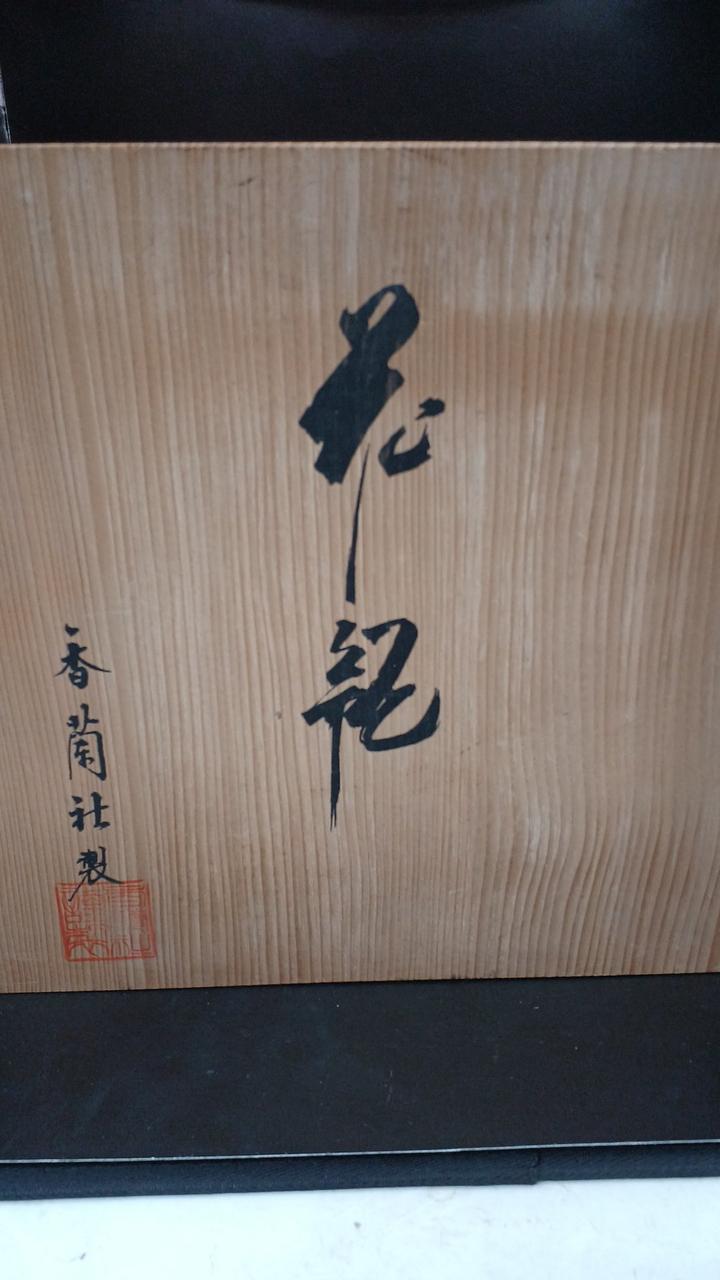 花瓶
香蘭社製